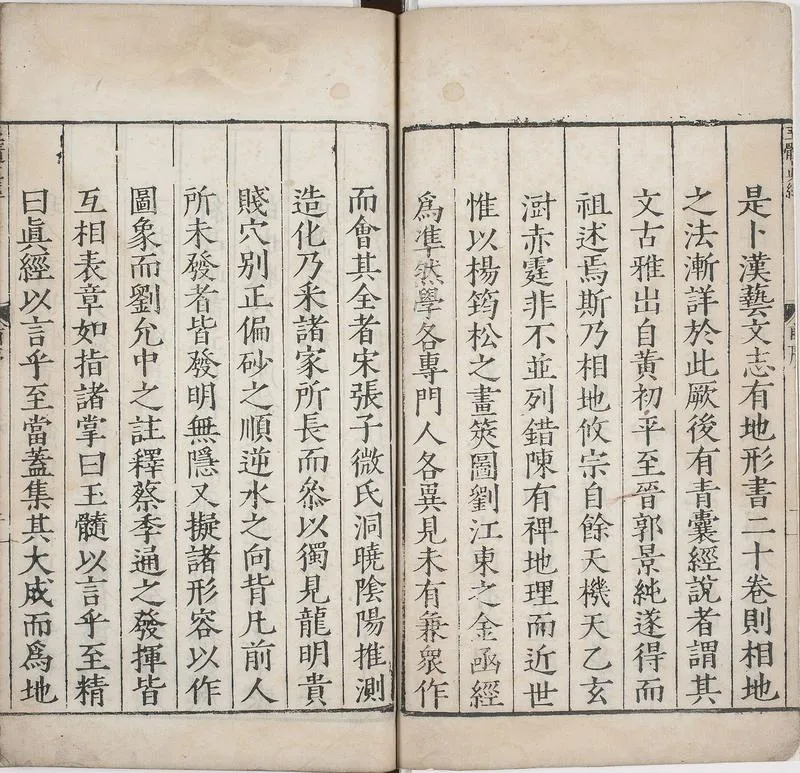 是卜漢藝文志有地形書二十卷則相地
之法漸詳於此厥後有青囊經說者謂其
文古雅出自黃初平至晉郭景純遂得而
祖述焉斯乃相地攸宗自餘天機天乙玄
澍赤霆非不並列錯陳有裨地理而近世
惟以楊筠松之畫筴圖劉江東之金函經
為準然學各專門人各異見未有兼眾作
而會其全者宋張子微氏洞曉陰陽推測
造化乃采諸家所長而叅以獨見龍明貴
賤穴別正偏砂之順逆水之向背凡前人
所未發者皆發明無隱又擬諸形容以作
圖象而劉允中之註釋蔡季通之發揮皆
互相表章如指諸掌曰玉髓以言乎至精
曰眞經以言乎至當蓋集其大成而為地